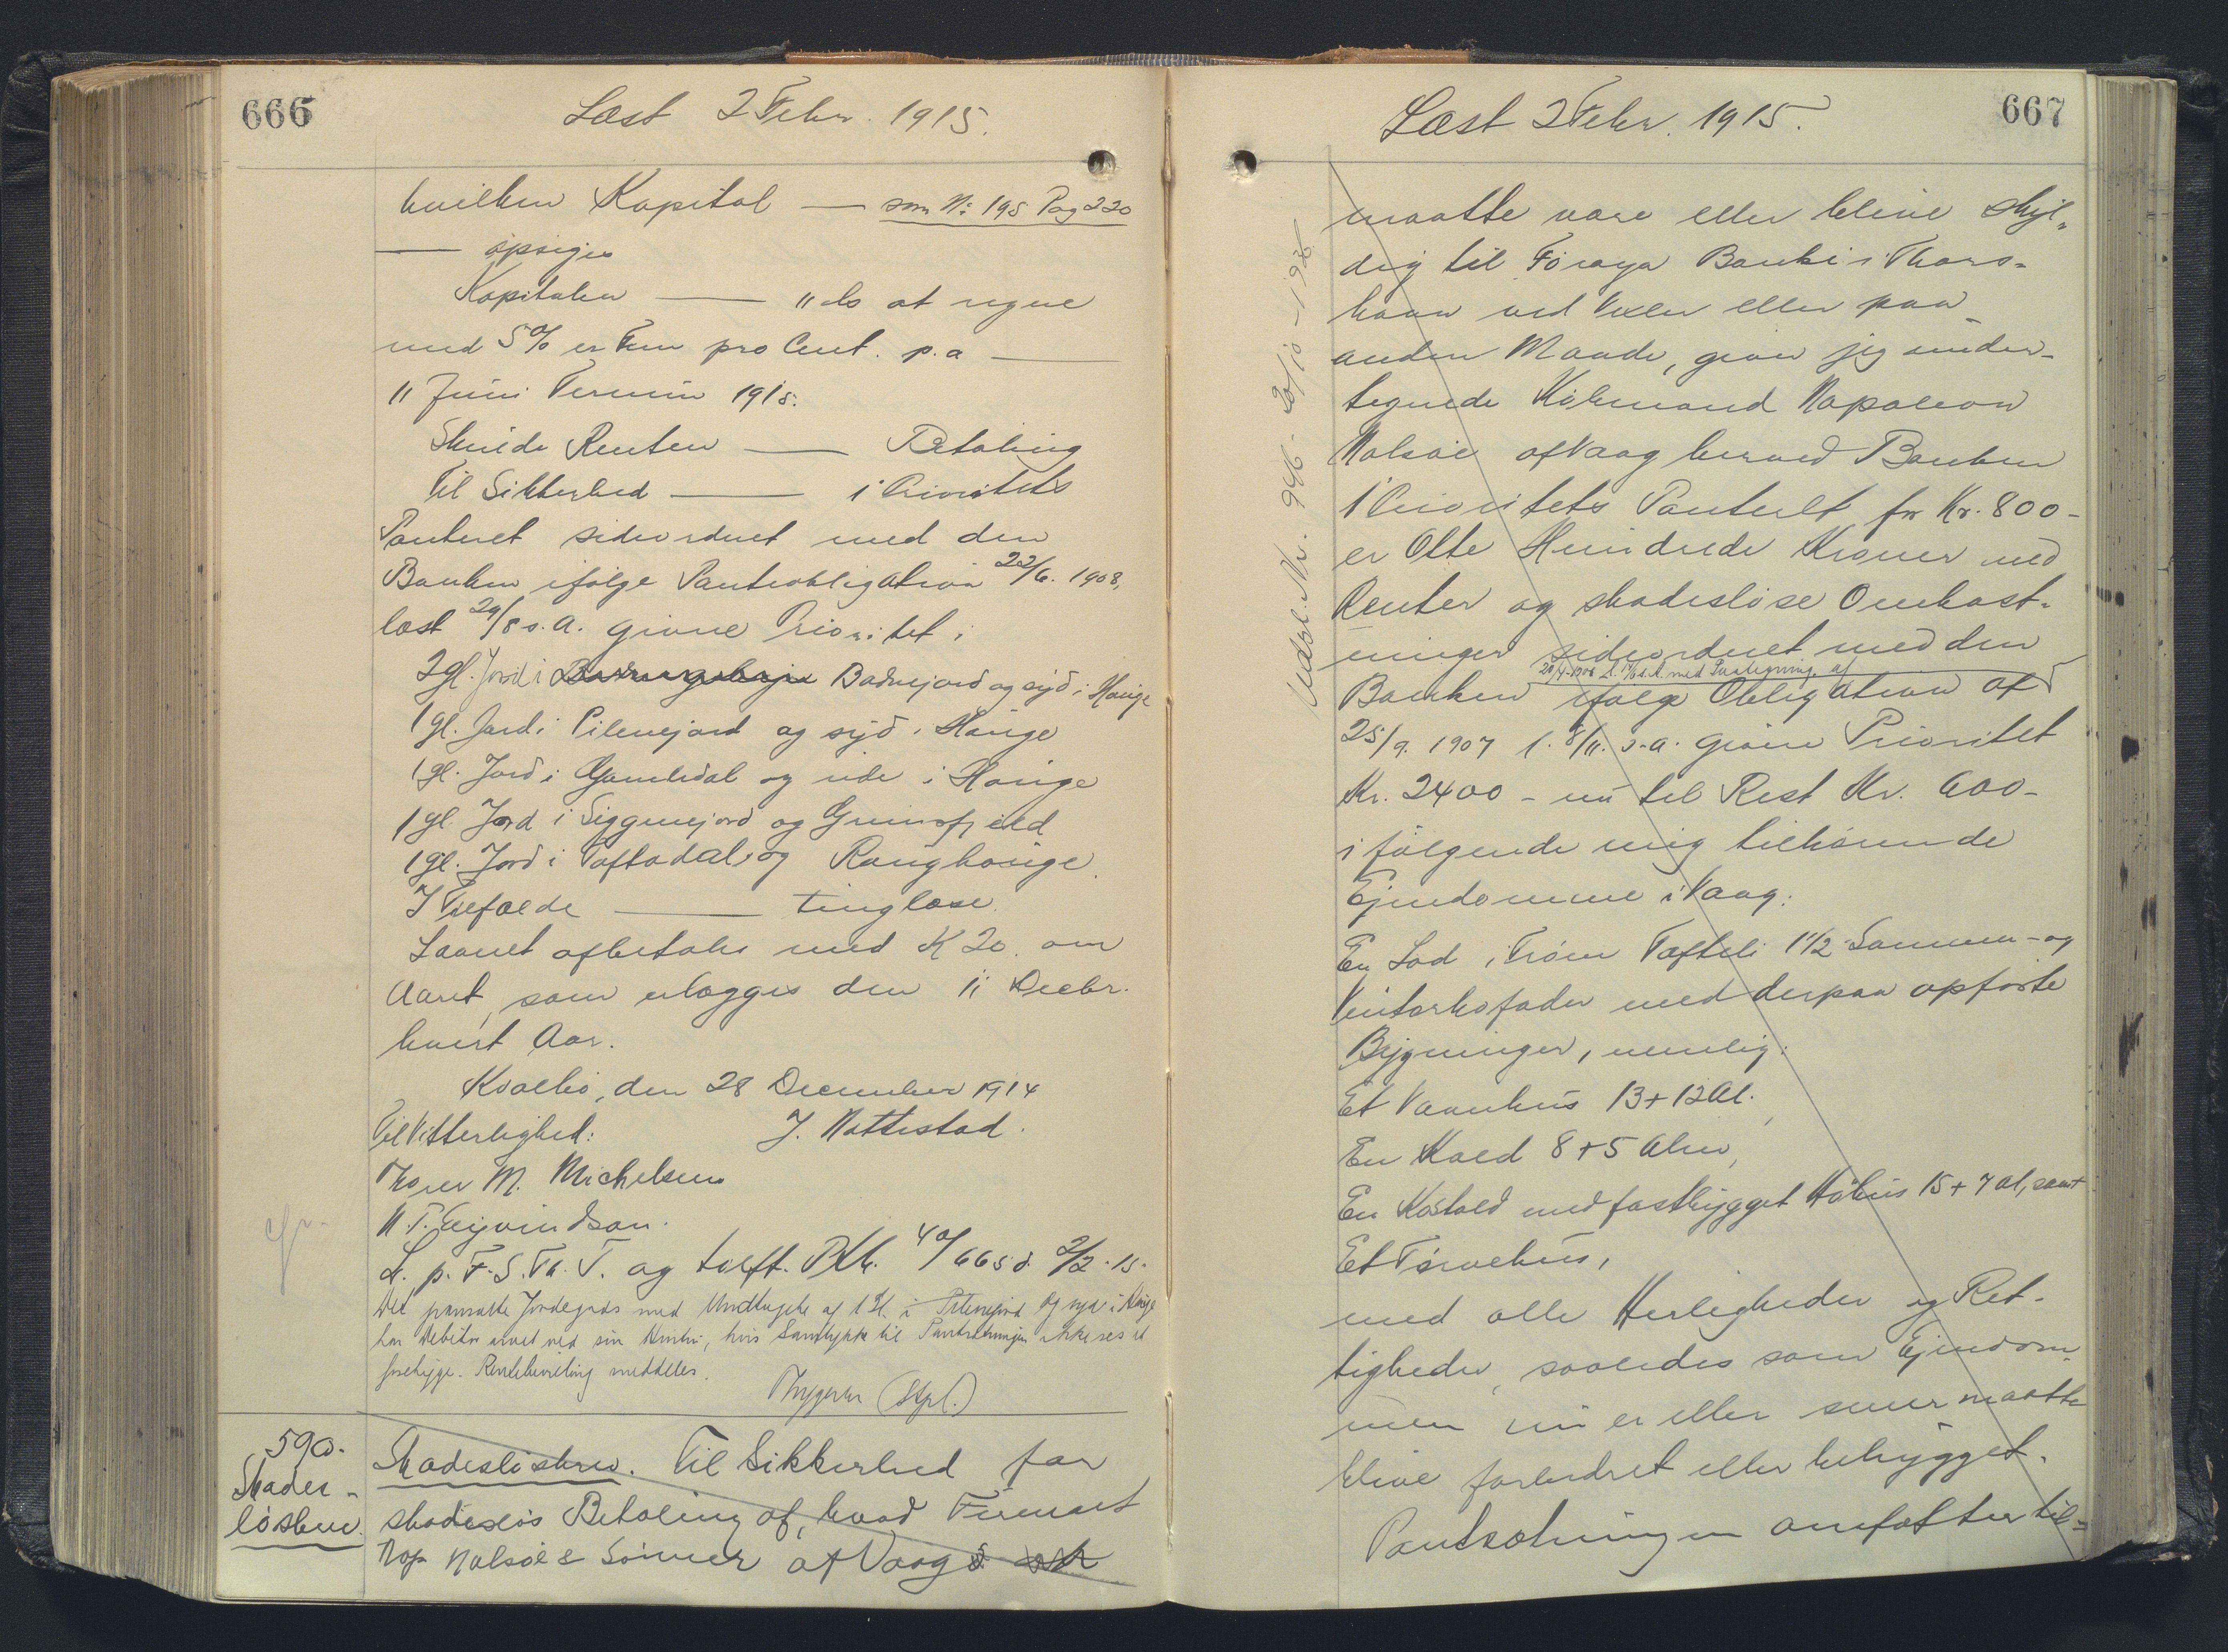 666
Læst 2 Febr. 1915.
hvilken Kapital — som No 195 Pag 220
— opsiges
Kapitalen — 11 ds at regne
med 5% er Fem pro Cent. p.a —
11 Juni Termin 1915.
Skulde Renten — Betaling
Til Sikkerhed — 1 Prioritets
Panteret sideordnet med den
Banken ifølge Panteobligation 22/6. 1908,
læst 24/8 s.A. givne Prioritet i
2 gl. Jord i Badnejord og syd i Hauge
1 gl. Jord i Pilenejord og syd i Hauge
1 gl. Jord i Gamledal og ude i Hauge
1 gl. Jord i Siggenejord og Grimsfjeld
1 gl. Jord i Toftadal og Raughauge.
I Tilfælde — tinglæse.
Laanet afbetales med K 20. om
Aaret, som erlægges den 11 Decbr.
hvert Aar.
Kvalbø, den 28 December 1914
Til Vitterlighed: J. Nattestad.
Thorer M. Michelsen
N.T. Eyvindson.
L. p. F.S.Th.T. og tilft. Ptb. 40/665 d. 2/2.15.
Det pansatte Jordegods med Undtagelse af 1 Gl. i Pilenejord og syd i Hauge
har Debitor arvet ved sin Hustru, hvis Samtykke til Pantsætningen ikke ses at
foreligge. Rettebevilling meddeles.
Thygesen (Stpl.)
590.
Skades-
løsbrev.
Skadesløsbrev. Til Sikkerhed for
skadesløs Betaling af, hvad Firmaet
Nap Nolsøe & Sønner af Vaag
667
Læst 2 Febr. 1915.
Udsl. Nr. 946 - 20/10 - 1936
maatte være eller blive skyl-
dig til Føroya Banki i Thors-
havn ved Vexler eller paa
anden Maade, giver jeg under-
tegnede Købmand Napoleon
Nolsøe af Vaag herved Banken
1 Prioritets Panteret for Kr. 800-
er Otte Hundrede Kroner med
Renter og skadesløse Omkost-
ninger sideordnet med den
20/4 1906 l. 14/6 s.A. med Paategning af
Banken ifølge Obligation af
25/9. 1907 l. 8/11. s.a. givne Prioritet
Kr. 2400 - nu til Rest Kr. 600-
i følgende mig tilhørende
Ejendomme i Vaag:
En Lod i Frøen Tofteli 1 1/2 Sommer- og
Vinterkofoder med derpaa opførte
Bygninger, nemlig:
Et Vaanhus 13 + 12 Al.,
En Kæld 8 + 5 Alen,
En Kostald med fastbygget Høhus 15 + 7 Al, samt
Et Tørvehus,
med alle Herligheder og Ret-
tigheder, saaledes som Ejendom-
men nu er eller senere maatte
blive forbedret eller bebygget.
Pantsætningen omfatter til-